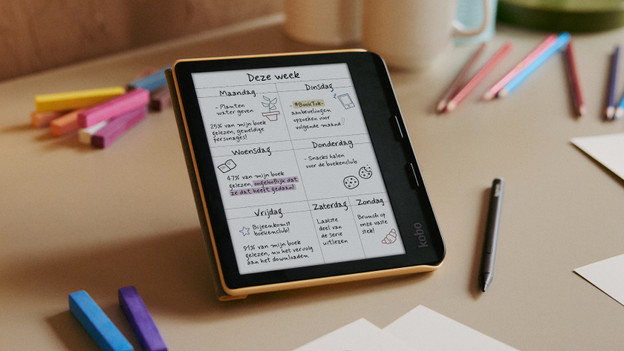 Deze week
Maandag
- Planten
water geven
25% van mijn boek
gelezen, geweldige
personages!
Dinsdag
#BookTok-
aanbevelingen
opzoeken voor
volgende maand!
Woensdag
47% van mijn boek
gelezen, ongelooflijk dat
ze dat heeft gedaan!
Donderdag
- Snacks halen
voor de boekenclub
Vrijdag
Bijeenkomst
boekenclub!
91% van mijn boek
gelezen, nu het vervolg
aan het downloaden
Zaterdag
Laatste
deel van
de serie
uitlezen
Zondag
Brunch op
mijn vaste
stek!
kobo